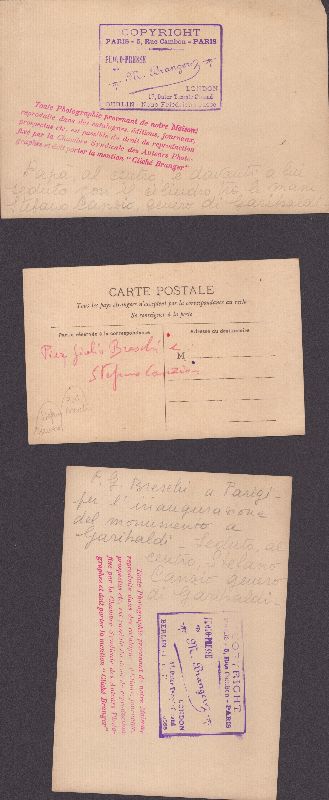 COPYRIGHT
PARIS - 5, Rue Cambon - PARIS
PHOTO-PRESSE
M. Branger
LONDON
17, Outer Temple Strand
BERLIN
Toute Photographie provenant de notre Maison,
reproduite dans des catalogues, éditions, journaux,
prospectus etc. est passible du droit de reproduction
fixé par la Chambre Syndicale des Auteurs Photo-
graphes et doit porter la mention "Cliché Branger"
Papà al centro e davanti a lui
seduto con il cilindro tra le mani
Stefano Canzio, genero di Garibaldi
CARTE POSTALE
Tous les pays étrangers n'acceptent pas la correspondance au recto
Se renseigner à la poste
Partie réservée à la correspondance
Adresse du destinataire
Pier Giulio Breschi e
M
Stefano Canzio
P. G. Breschi a Parigi -
per l'inaugurazione
del monumento a
Garibaldi - Seduto al
centro Stefano
Canzio genero
di Garibaldi
Toute Photographie provenant de notre Maison,
reproduite dans des catalogues, éditions, journaux,
prospectus etc. est passible du droit de reproduction
fixé par la Chambre Syndicale des Auteurs Photo-
graphes et doit porter la mention "Cliché Branger"
COPYRIGHT
5, Rue Cambon - PARIS
PHOTO-PRESSE
M. Branger
LONDON
BERLIN